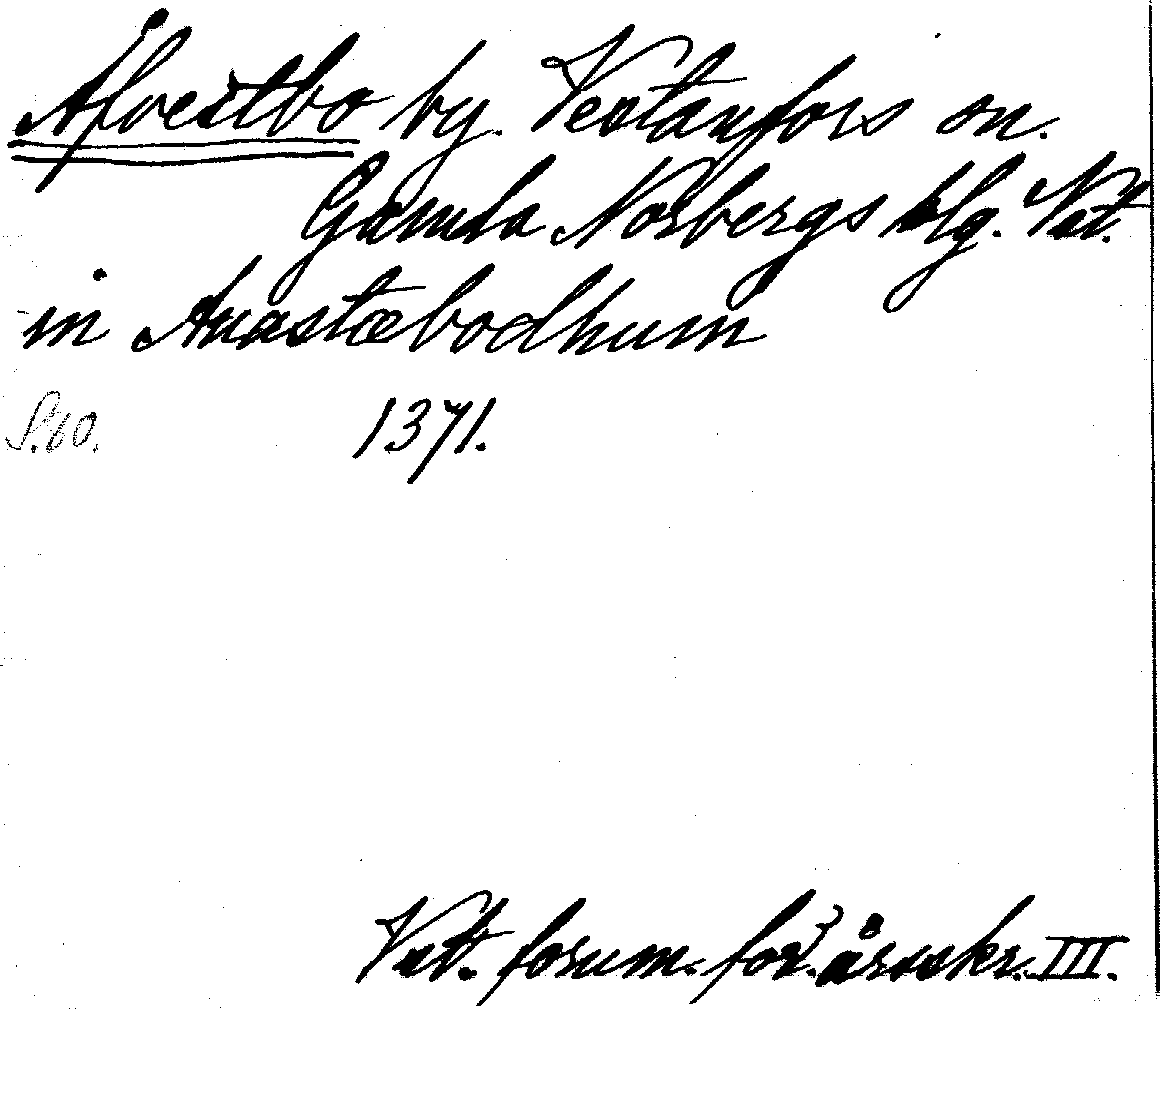 Åfvestbo by. Vestanfors sn.
Gamla Norbergs blg. Vst.
in Auastæbodhum
S. 60. 1371.
Vstm. fornm. för:s årsskr. III.